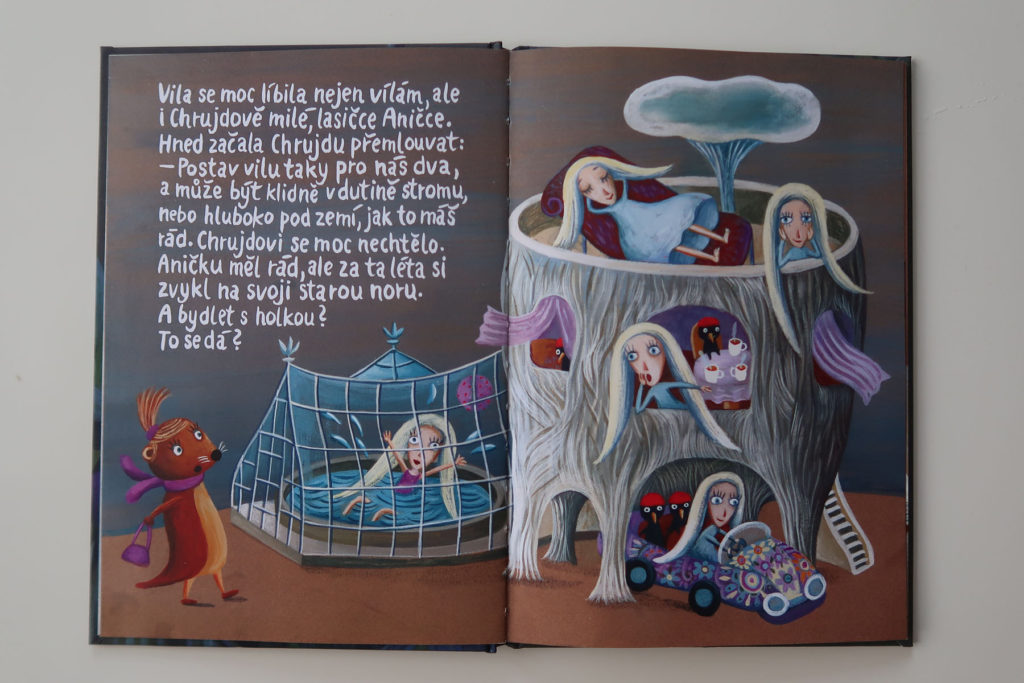 Vila se moc líbila nejen vílám, ale
i Chrujdově milé, lasičce Aničce.
Hned začala Chrujdu přemlouvat:
– Postav vilu taky pro nás dva,
a může být klidně v dutině stromu,
nebo hluboko pod zemí, jak to máš
rád. Chrujdovi se moc nechtělo.
Aničku měl rád, ale za ta léta si
zvykl na svoji starou noru.
A bydlet s holkou?
To se dá?